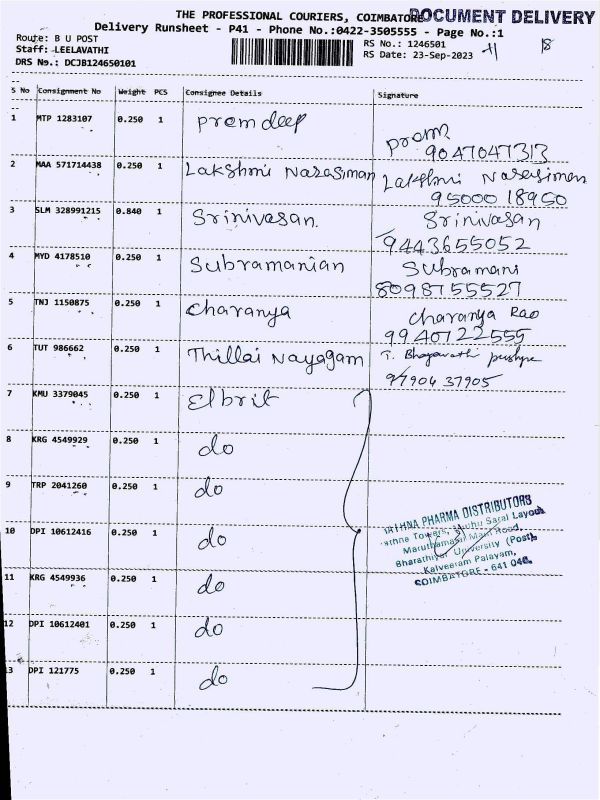 THE PROFESSIONAL COURIERS, COIMBATORE
DOCUMENT DELIVERY
Delivery Runsheet - P41 - Phone No.:0422-3505555 - Page No.:1
Route: B U POST
RS No.: 1246501
Staff: LEELAVATHI
RS Date: 23-Sep-2023
DRS No.: DCJB124650101
S No Consignment No Weight PCS Consignee Details Signature
1 MTP 1283107 0.250 1 Prem deep
Prem
9047047313
2 MAA 571714438 0.250 1 Lakshmi Narasiman Lakshmi Narasiman
95000 18950
3 SLM 328991215 0.840 1 Srinivasan. Srinivasan
9443655052
4 MYD 4178510 0.250 1 Subramanian Subramani
8098755527
5 TNJ 1150875 0.250 1 Charanya Charanya Rao
9940722555
6 TUT 986662 0.250 1 Thillai Nayagam T. Bhagavathi
97904 37905
7 KMU 3379045 0.250 1 Elbrit
8 KRG 4549929 0.250 1 do
9 TRP 2041260 0.250 1 do
10 DPI 10612416 0.250 1 do
11 KRG 4549936 0.250 1 do
12 DPI 10612401 0.250 1 do
13 DPI 121775 0.250 1 do
PHARMA DISTRIBUTORS
Towers, Saral Layout
Maruthamalai Main Road,
Bharathiyar University (Post),
Kalveeram Palayam,
COIMBATORE - 641 046.